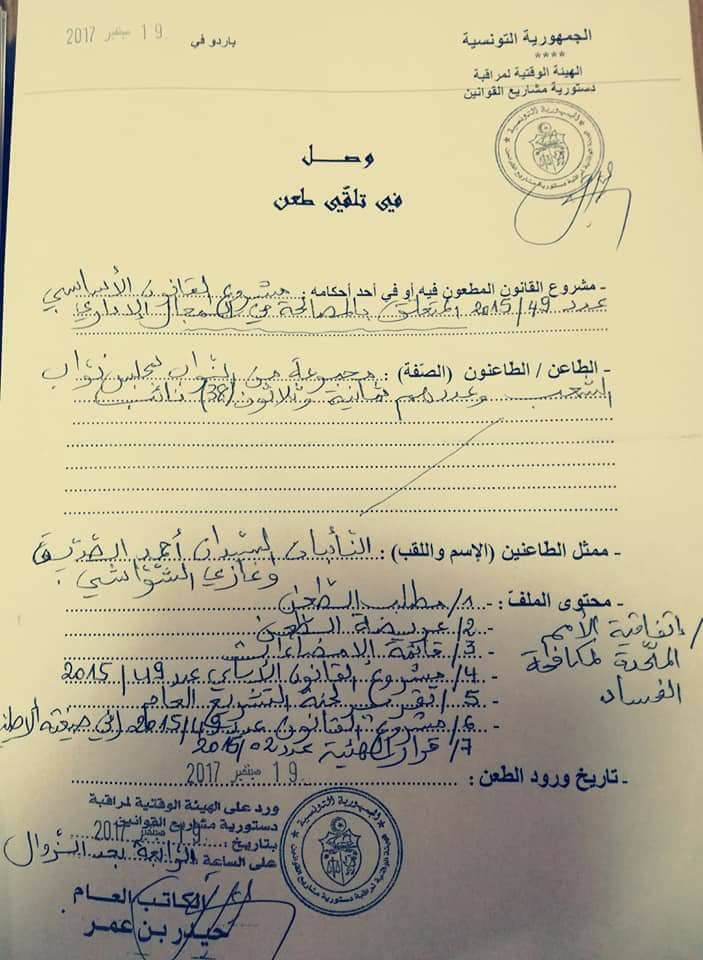 الجمهورية التونسية
****
الهيئة الوقتية لمراقبة
دستورية مشاريع القوانين
باردو في 19 سبتمبر 2017
وصل
في تلقّي طعن
- مشروع القانون المطعون فيه أو في أحد أحكامه : مشروع القانون الأساسي
عدد 2015/49 المتعلق بالمصالحة في المجال الإداري
- الطاعن / الطاعنون (الصّفة) : مجموعة من النواب بمجلس نواب
الشعب وعددهم ثمانية وثلاثون (38) نائب
- ممثل الطاعنين (الإسم واللقب) : النائبان السيدان أحمد الصديق
وغازي الشواشي .
- محتوى الملف : - 1/ مطلب الطعن
- 2/ عريضة الطعن
- 3/ قائمة الإمضاءات
- 4/ مشروع القانون الأساسي عدد 49/2015
- 5/ تقرير لجنة التشريع العام
- 6/ مشروع القانون عدد 2015/49 في صيغته
7/ قرار الهيئة عدد 02/2015
/ إتفاقية الأمم
المتّحدة لمكافحة
الفساد
- تاريخ ورود الطعن : 19 سبتمبر 2017
ورد على الهيئة الوقتية لمراقبة
دستورية مشاريع القوانين
بتاريخ : 19 سبتمبر 2017
على الساعة الرابعة بعد الزوال
الكاتب العام
حيدر بن عمر